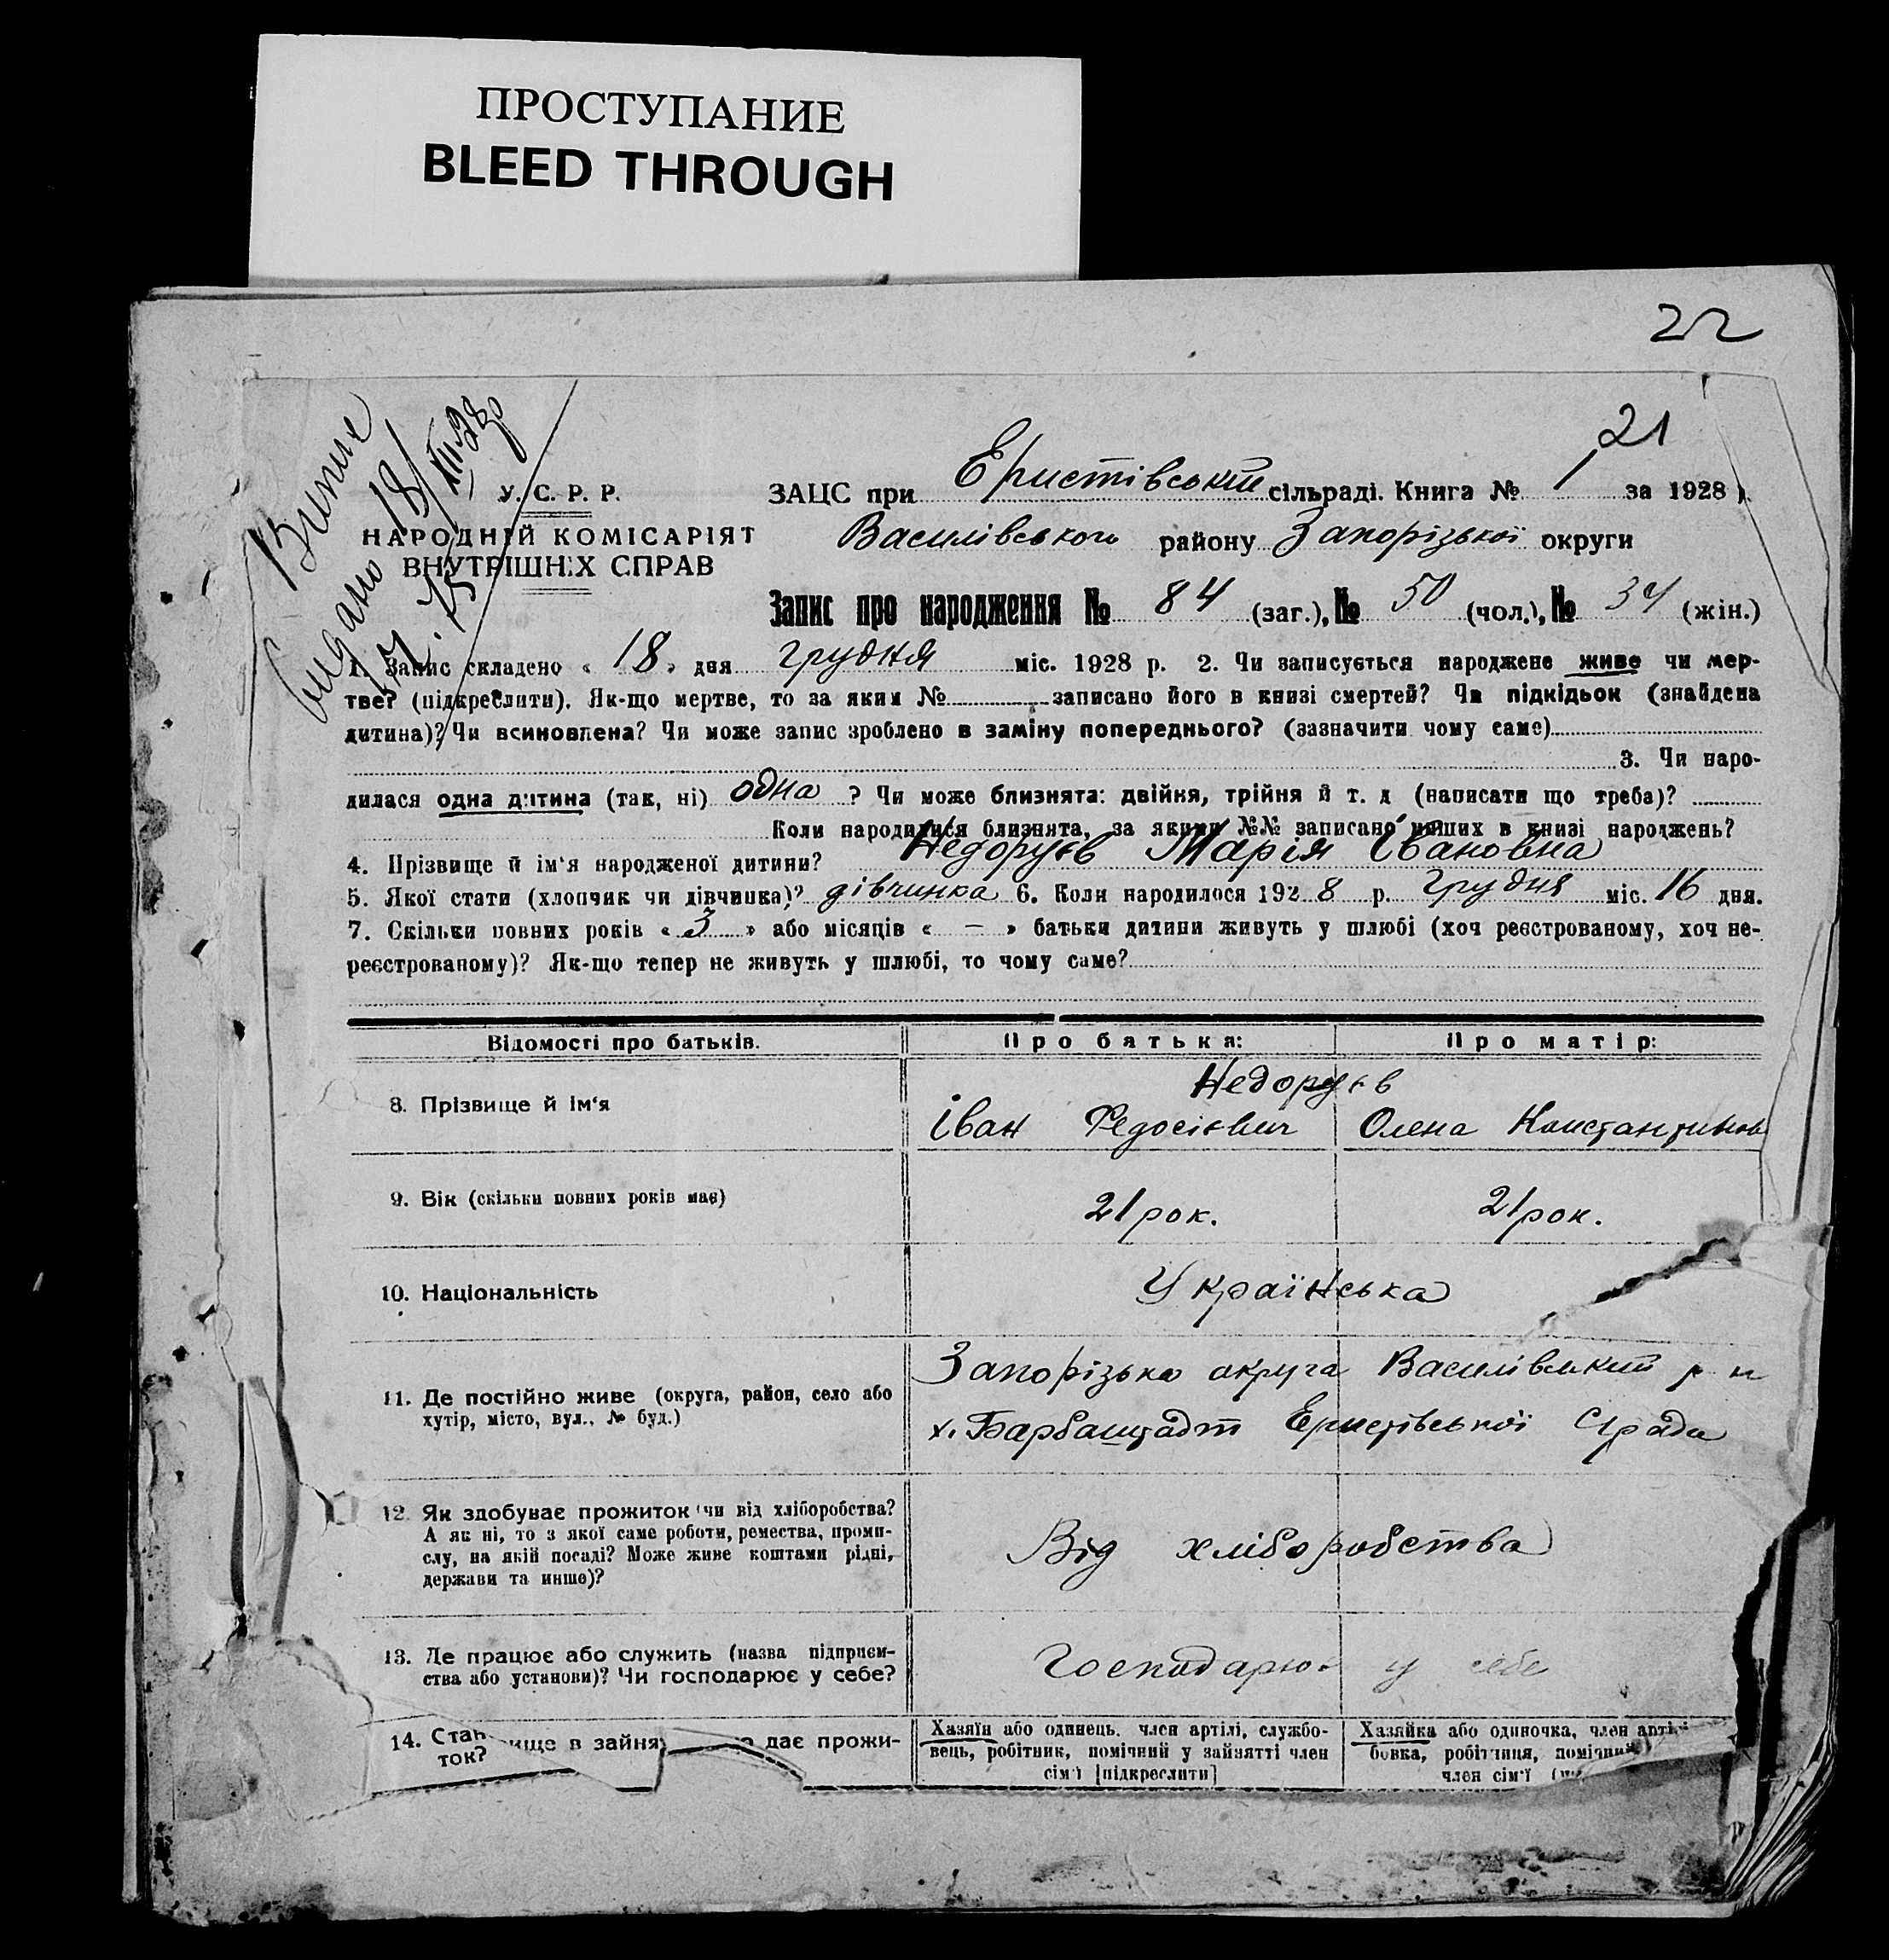 ПРОСТУПАНИЕ
BLEED THROUGH
22
21
Випис
видано 18/XII-28р
У. С. Р. Р.
НАРОДНІЙ КОМІСАРІЯТ
ВНУТРІШНІХ СПРАВ
ЗАЦС при Еристівській сільраді. Книга № 1 за 1928 р.
Василівського району Запорізької округи
Запис про народження № 84 (заг.), № 50 (чол.), № 34 (жін.)
1. Запис складено « 18 » дня грудня міс. 1928 р. 2. Чи записується народжене живе чи мер-
тве? (підкреслити). Як-що мертве, то за яким № записано його в книзі смертей? Чи підкідьок (знайдена
дитина)? Чи всиновлена? Чи може запис зроблено в заміну попереднього? (зазначити чому саме)
3. Чи наро-
дилася одна дитина (так, ні) одна ? Чи може близнята: двійня, трійня й т. д (написати що треба)?
Коли народилися близнята, за якими №№ записано инших в книзі народжень?
4. Прізвище й ім'я народженої дитини? Недоруєв Марія Івановна
5. Якої стати (хлопчик чи дівчинка)? дівчинка 6. Коли народилося 1928 р. грудня міс. 16 дня.
7. Скільки повних років « 3 » або місяців « — » батьки дитини живуть у шлюбі (хоч реєстрованому, хоч не-
реєстрованому)? Як-що тепер не живуть у шлюбі, то чому саме?
Відомості про батьків. Про батька: Про матір:
Недоруєв
8. Прізвище й ім'я Іван Федосієвич Олена Константинов
9. Вік (скільки повних років має) 21 рок. 21 рок.
10. Національність Українська
11. Де постійно живе (округа, район, село або
хутір, місто, вул., № буд.)
Запорізька округа Василівський р н
х. Барбаштадт Еристівської С/рада
12. Як здобуває прожиток (чи від хліборобства?
А як ні, то з якої саме роботи, ремества, проми-
слу, на якій посаді? Може живе коштами рідні,
держави та инше)?
Від хліборобства
13. Де працює або служить (назва підприєм-
ства або установи)? Чи господарює у себе?
Господарює у себе
14. Стан вище в зайня дає прожи-
ток?
Хазяїн або одинець, член артілі, службо-
вець, робітник, помічний у зайнятті член
сім'ї [підкреслити]
Хазяйка або одиночка, член арті
бовка, робітниця, помічни
член сім'ї